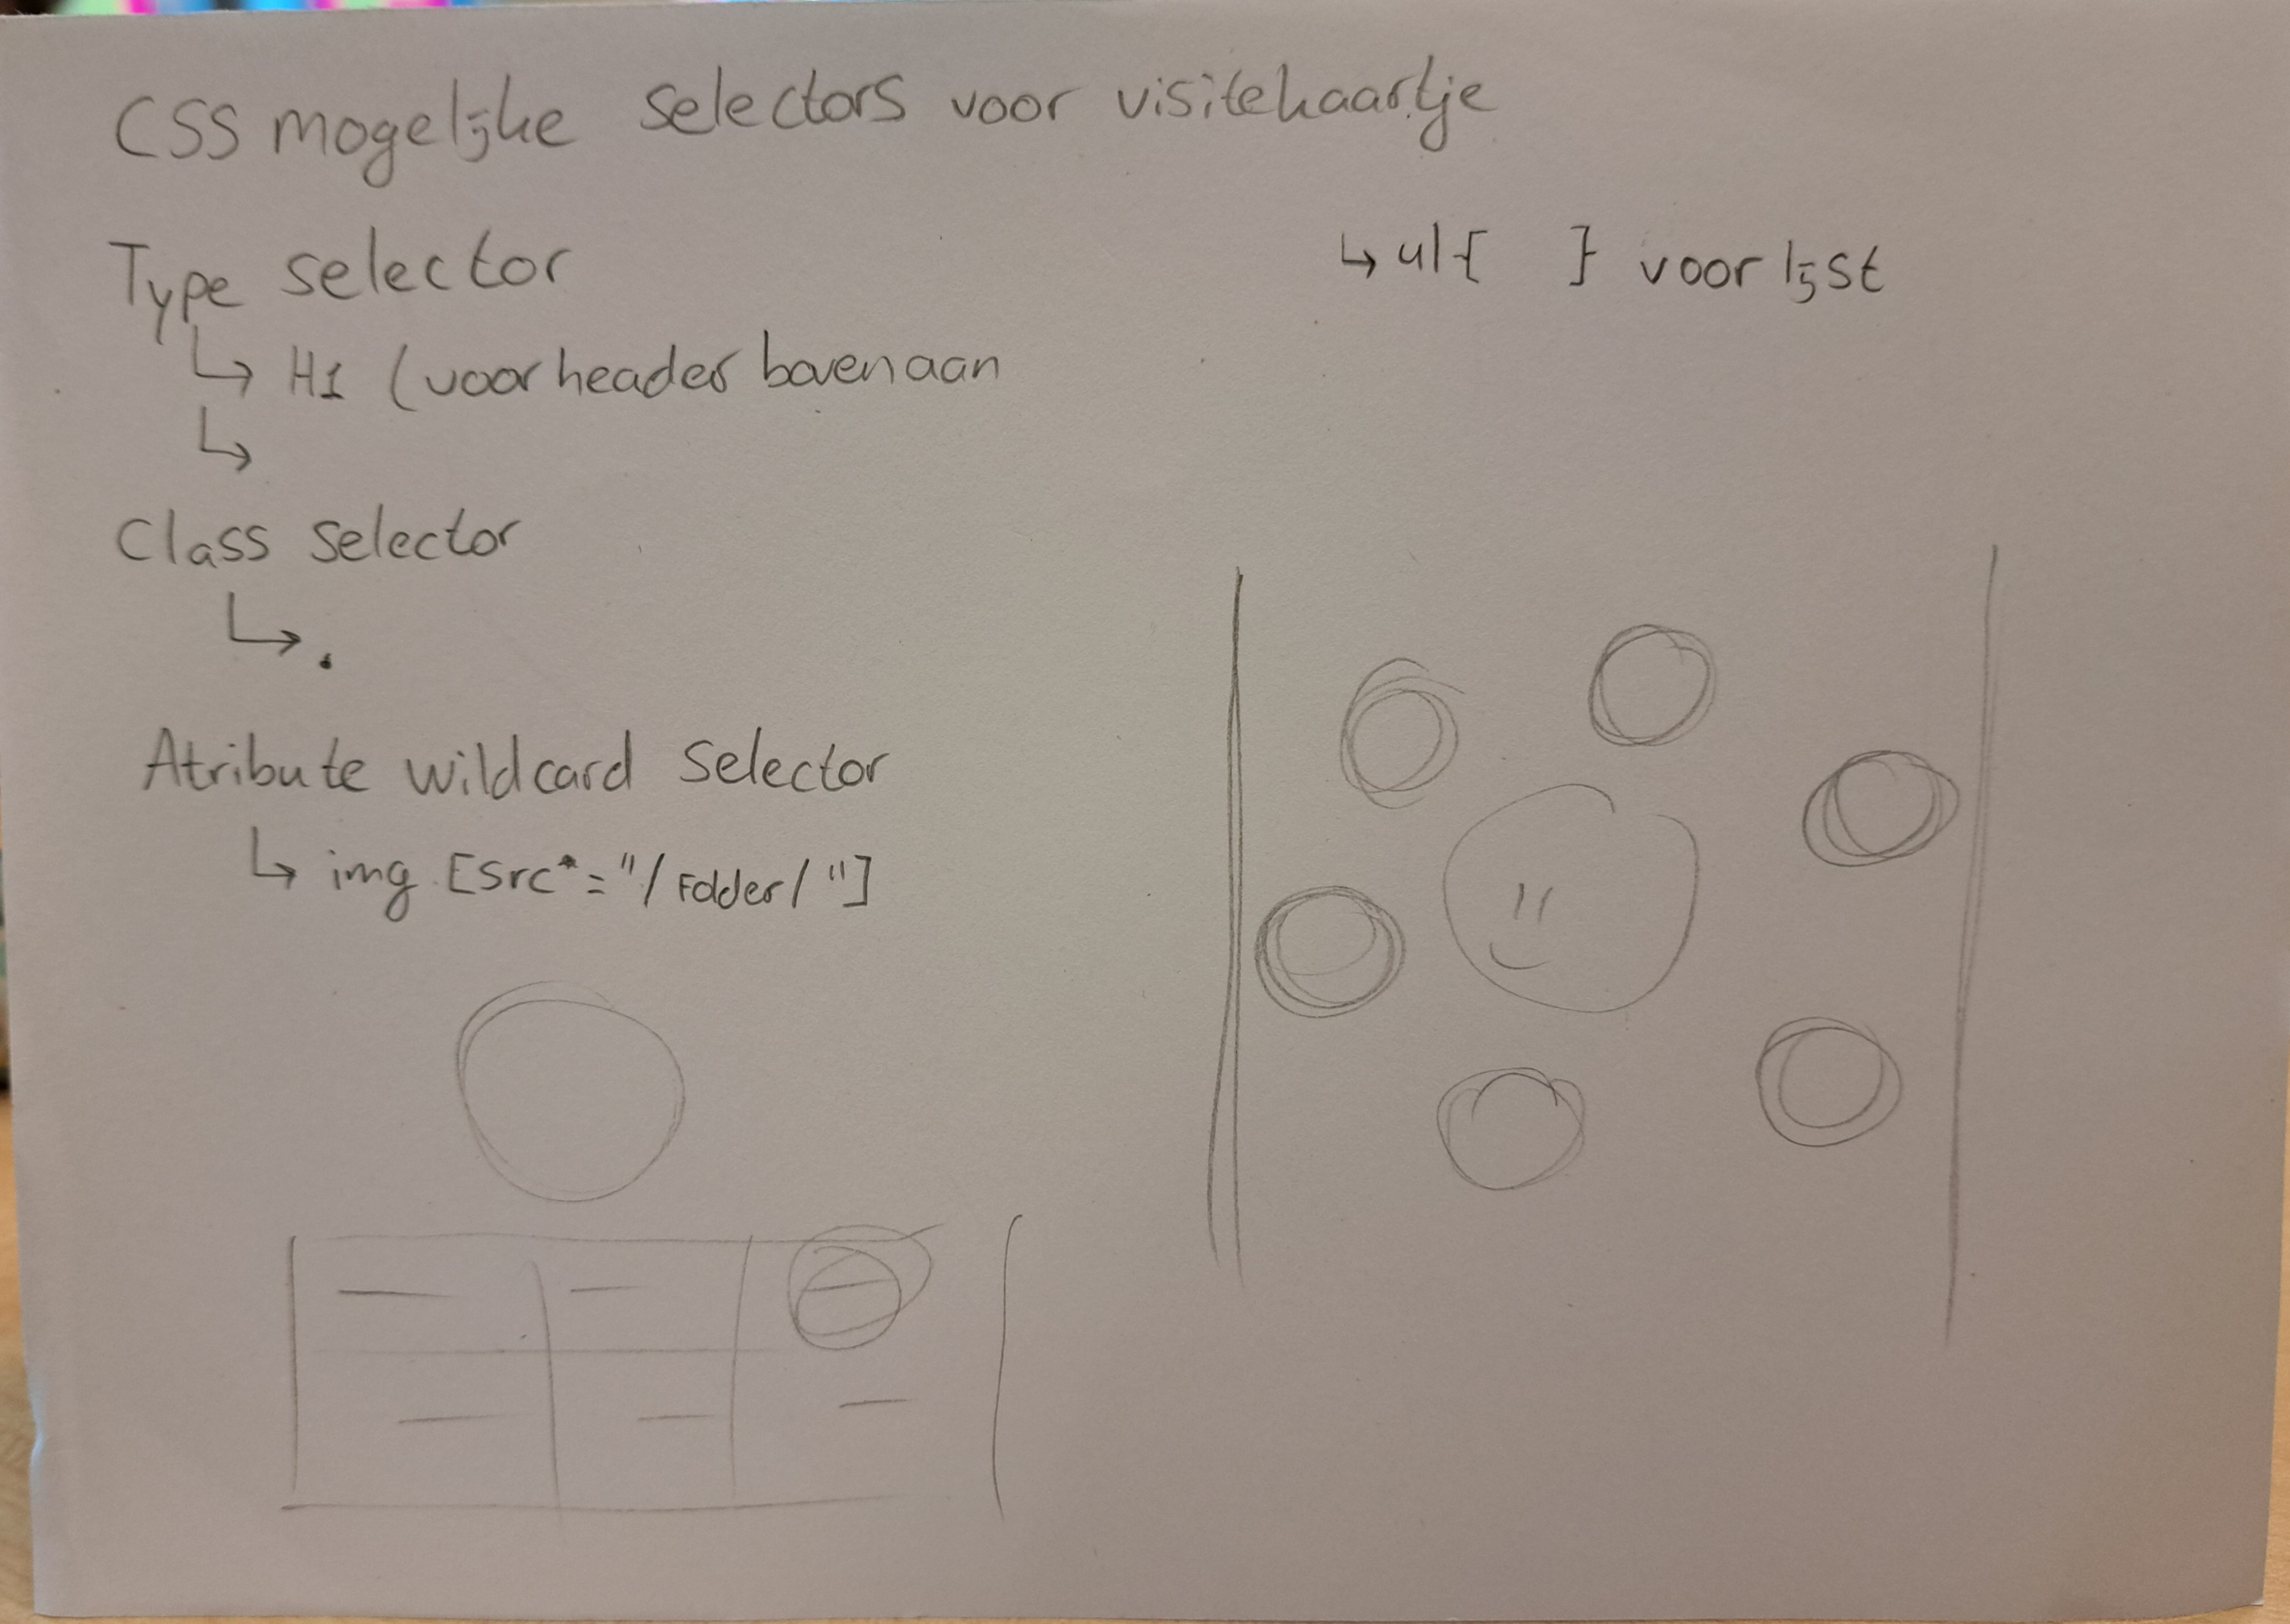 CSS mogelijke selectors voor visitekaartje
Type selector
↳ H1 (voor header bovenaan
↳
Class selector
↳ .
Atribute wildcard selector
↳ img [src*="/Folder/"]
↳ ul{ } voor lijst